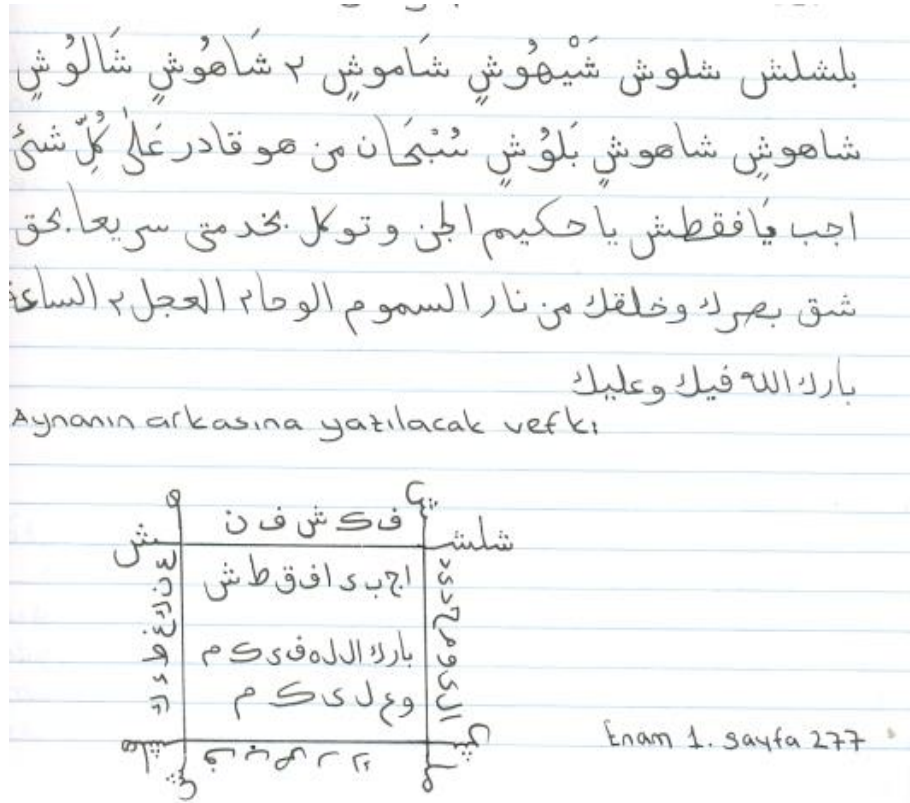 بلشلش شلوش شَيْهُوْشٍ شَاموشٍ ٢ شَاهُوُشٍ شَالُوُشٍ
شاهوشٍ شاهوشٍ بَلوُشٍ سُبْحَان من هو قادر عَلىٰ كُلِّ شئ
اجب يَافقطش ياحكيم الجن وتوكل بخدمتى سريعا بحق
شق بصرك وخلقك من نار السموم الوحا٢ العجل٢ الساعة
بارك الله فيك وعليك
Aynanın arkasına yazılacak vefki
ف ك ش ف ن
ش
شلش
اج ب ى ا ف ق ط ش
بارك ال ل ه ف ى ك م
وع ل ى ك م
ع ن ك غ ط ء ك
ال ى و م ح د ى د
Enam 1. sayfa 277